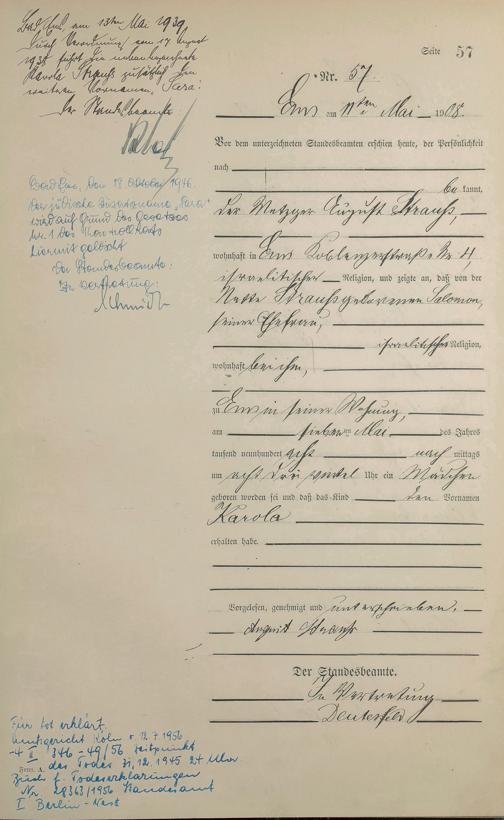 Bad Ems, am 13ten Mai 1939.
Durch Verordnung vom 17. August
1938 führt die nebenbezeichnete
Karola Strauß zusätzlich den
weiteren Vornamen „Sara“.
Der Standesbeamte
Bad Ems, den 18. Oktober 1946.
Der jüdische Beiname „Sara“
wird auf Grund des Gesetzes
Nr. 1 des Kontrollrats
hiermit gelöscht
Der Standesbeamte:
In Vertretung:
Schmidt
Seite 57
Nr. 57.
Ems am 11ten Mai 1908.
Vor dem unterzeichneten Standesbeamten erschien heute, der Persönlichkeit
nach
bekannt,
der Metzger August Strauß,
wohnhaft in Ems Koblenzerstraße No 4,
israelitischer Religion, und zeigte an, daß von der
Strauß geborenen Salomon,
seiner Ehefrau,
israelitischer Religion,
wohnhaft bei ihm,
zu Ems in seiner Wohnung,
am siebenten Mai des Jahres
tausend neunhundert acht nachmittags
um acht drei viertel Uhr ein Mädchen
geboren worden sei und daß das Kind den Vornamen
Karola
erhalten habe.
Vorgelesen, genehmigt und unterschrieben.
August Strauß
Der Standesbeamte.
In Vertretung
Für tot erklärt
Amtsgericht Köln v. 12.7.1956
-4 II 346-49/56 Zeitpunkt
Form. A. des Todes 31.12.1945 24 Uhr
Buch f. Todeserklärungen
Nr. 28363/1956 Standesamt
I Berlin-West